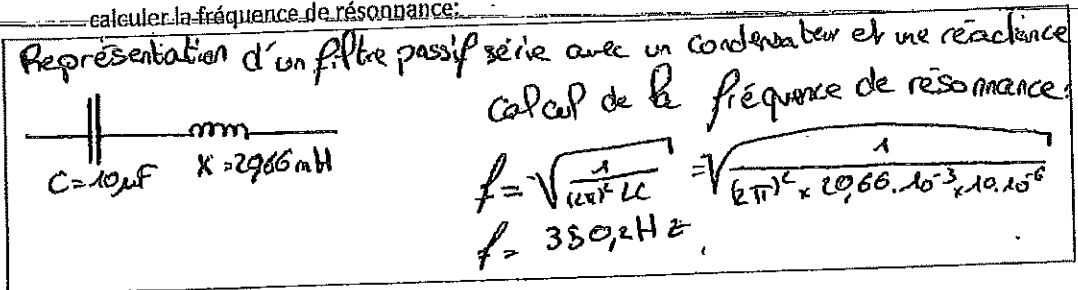 calculer la fréquence de résonnance:
Représentation d'un filtre passif série avec un condensateur et une réactance
Calcul de la fréquence de résonnance:
C=10µF X=20,66mH
f = √(1/((2π)² LC)) = √(1/((2π)² x 20,66.10⁻³ x 10.10⁻⁶))
f = 350,2Hz.